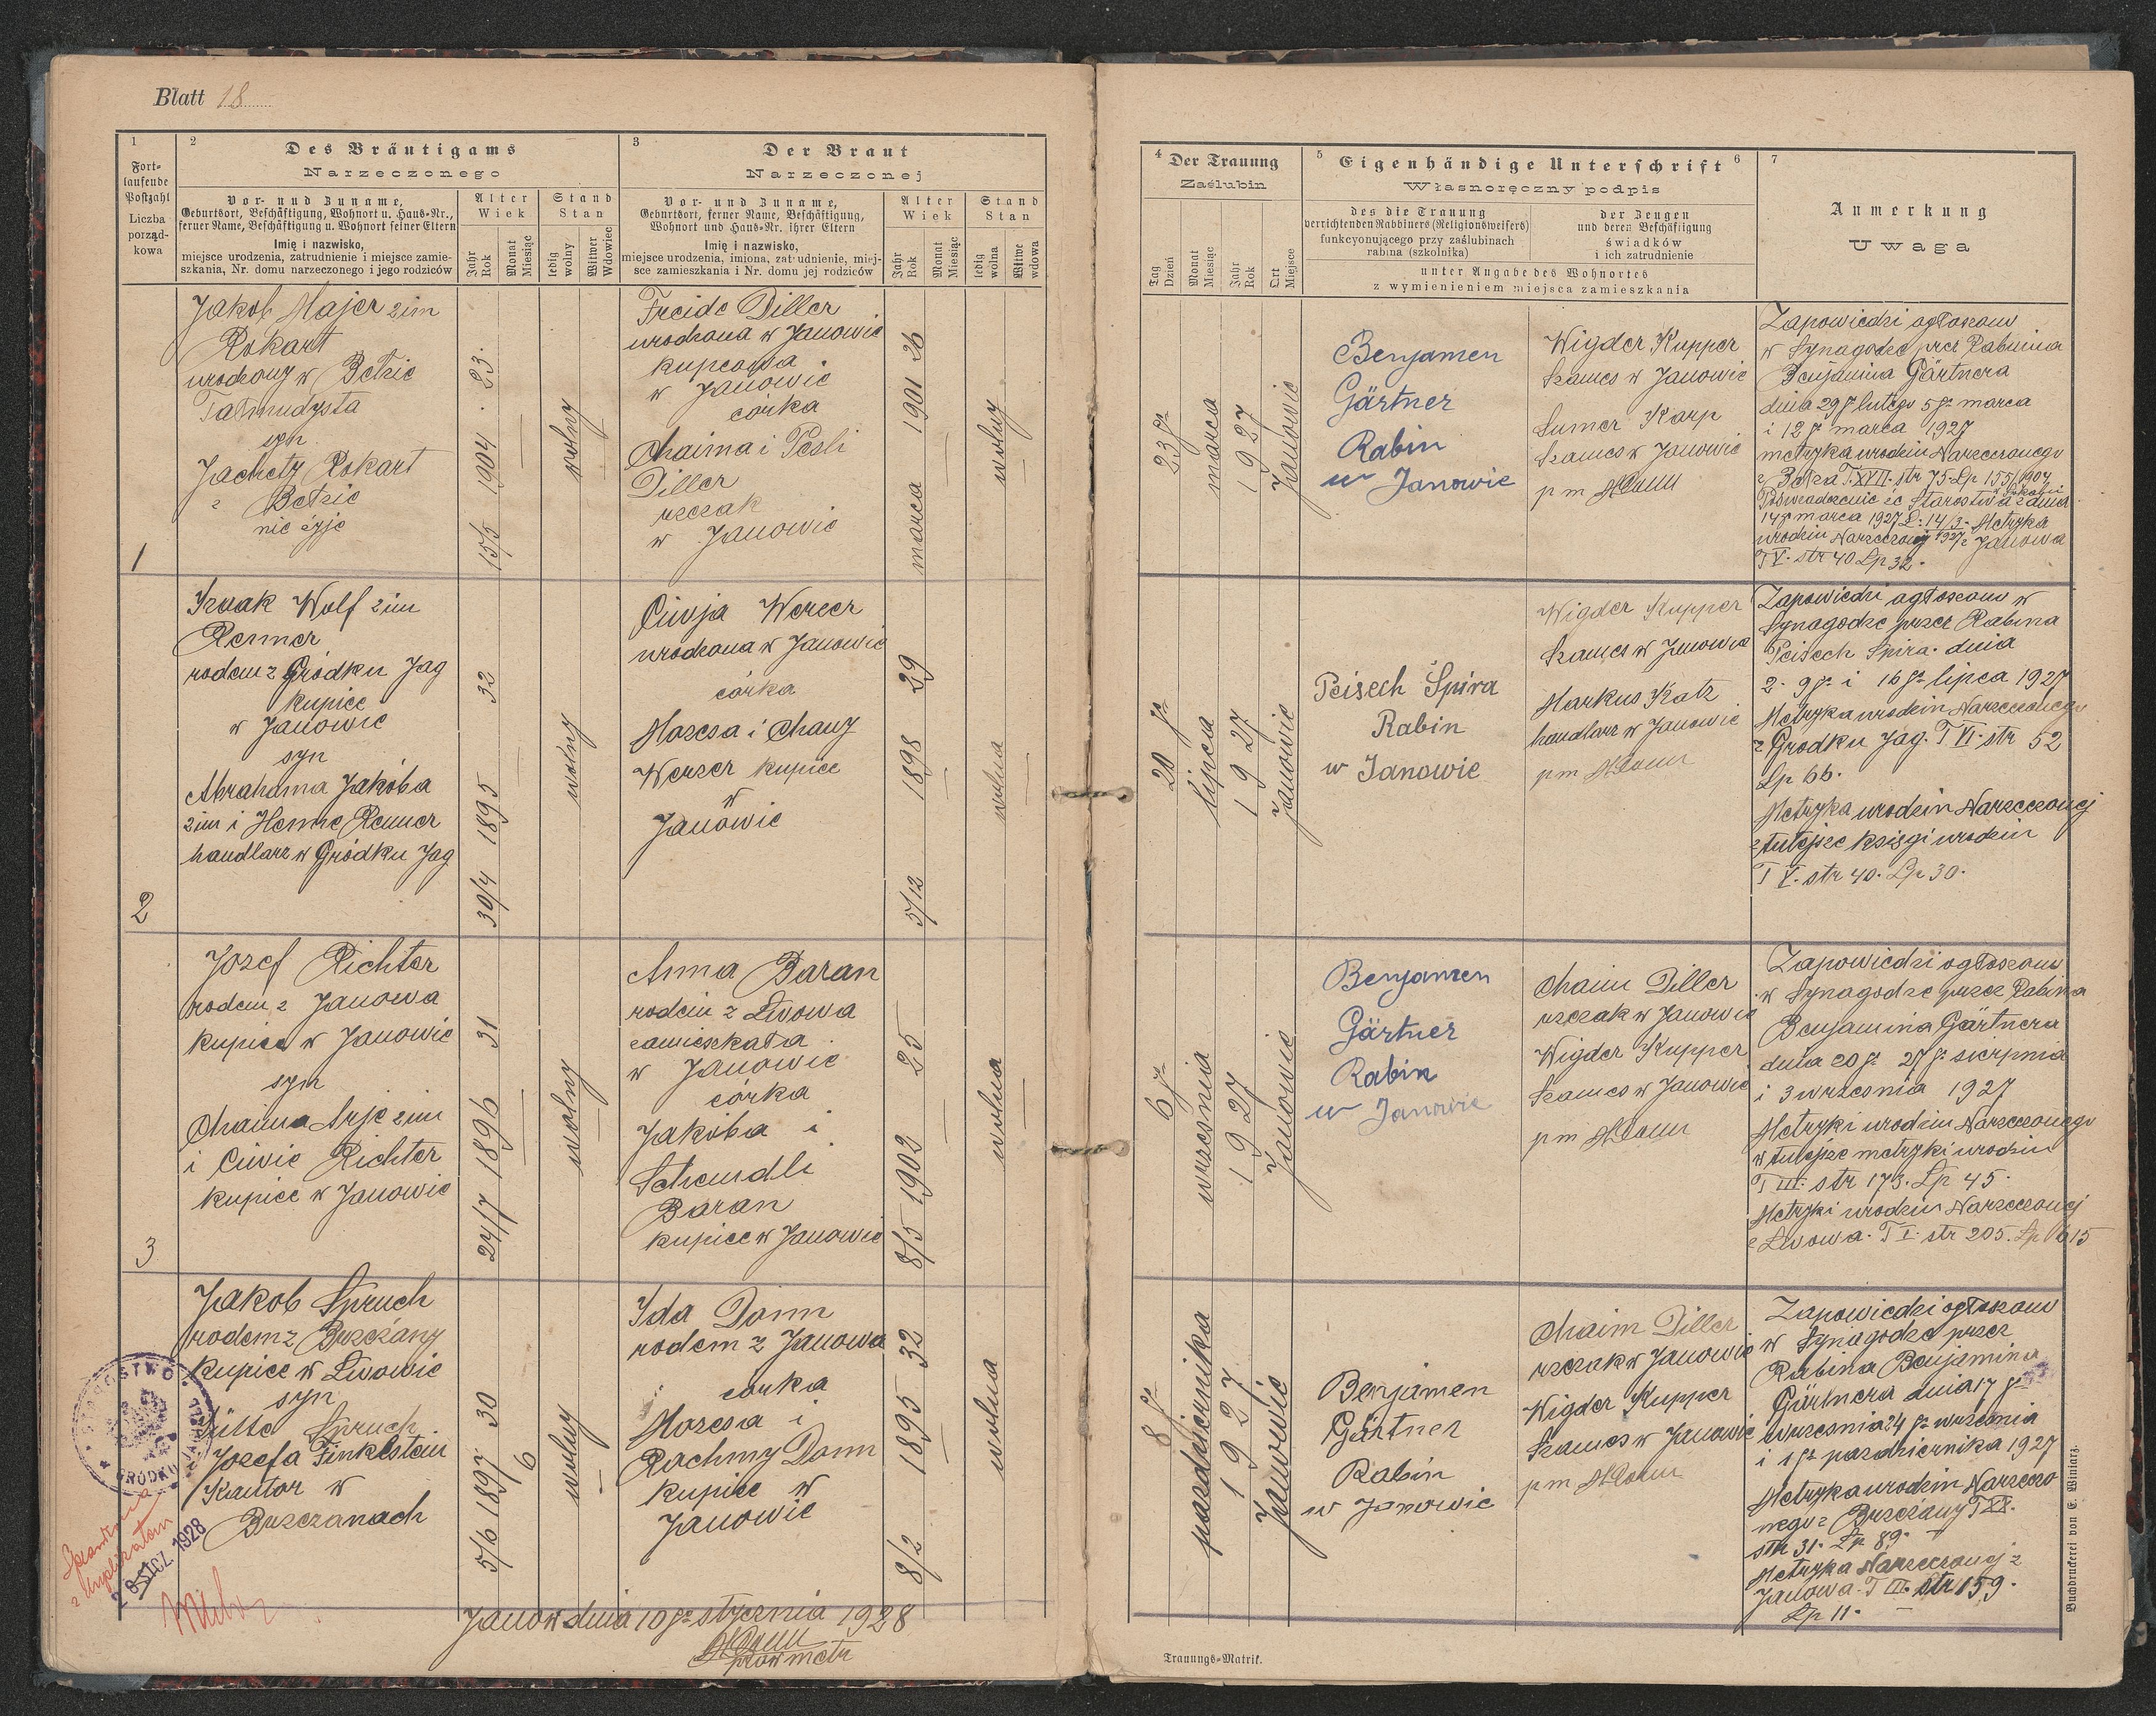 Blatt 18
1
Fort-
laufende
Postzahl
Liczba
porząd-
kowa
2
Des Bräutigams
Narzeczonego
Vor- und Zuname,
Geburtsort, Beschäftigung, Wohnort u. Haus-Nr.,
ferner Name, Beschäftigung u. Wohnort seiner Eltern
Imię i nazwisko,
miejsce urodzenia, zatrudnienie i miejsce zamie-
szkania, Nr. domu narzeczonego i jego rodziców
Alter
Wiek
Jahr
Rok
Monat
Miesiąc
Stand
Stan
ledig
wolny
Witwer
Wdowiec
3
Der Braut
Narzeczonej
Vor- und Zuname,
Geburtsort, ferner Name, Beschäftigung,
Wohnort und Haus-Nr. ihrer Eltern
Imię i nazwisko,
miejsce urodzenia, imiona, zatrudnienie, miej-
sce zamieszkania i Nr. domu jej rodziców
Alter
Wiek
Jahr
Rok
Monat
Miesiąc
Stand
Stan
ledig
wolna
Witwe
wdowa
1
Jakob Majer 2im
Rokart
urodzony w Bełzie
Talmudysta
syn
Jachety Rokart
z Bełzie
nie żyje
15/5 1904. 23.
wolny
Freide Diller
urodzona w Janowie
kupcowa
w Janowie
córka
Chaima i Pesli
Diller
rzezak
w Janowie
marca 1901 26
wolny
2
Izaak Wolf 2im
Remer
rodem z Gródku Jag
kupiec
w Janowie
syn
Abrahama Jakóba
2im i Henne Remer
handlarz w Gródku Jag
30/4 1895 32
wolny
Ciwja Werzer
urodzona w Janowie
córka
Mozesa i Chany
Werzer kupiec
w
Janowie
5/12 1898 29
wolna
3
Józef Richter
rodem z Janowa
kupiec w Janowie
syn
Chaima Arje 2im
i Ciwie Richter
kupiec w Janowie
24/7 1896 31
wolny
Anna Baran
rodem z Lwowa
zamieszkała
w Janowie
córka
Jakóba i
Scheindli
Baran
kupiec w Janowie
8/5 1902 25
wolna
Jakob Spruch
rodem z Brzeżany
kupiec w Lwowie
syn
Jütte Spruch
Jozefa Finkelstein
Kantor w
Brzezanach
5/6 1897 30
6
wolny
Ida Dann
rodem z Janowa
corka
Mozesa i
Rachmy Dann
kupiec w
Janowie
8/2 1895 32
wolna
STAROSTWO
z duplikatem
STCZ. 1928
Janow dnia 10go stycznia 1928
prow metr
4
Der Trauung
Zaślubin
Tag
Dzień
Monat
Miesiąc
Jahr
Rok
Ort
Miejsce
5
Eigenhändige Unterschrift
6
Własnoręczny podpis
des die Trauung
verrichtenden Rabbiners (Religionsweisers)
funkcyonującego przy zaślubinach
rabina (szkolnika)
der Zeugen
und deren Beschäftigung
świadków
i ich zatrudnienie
unter Angabe des Wohnortes
z wymienieniem miejsca zamieszkania
7
Anmerkung
Uwaga
23go
marca
1927
Janowie
Benjamen
Gärtner
Rabin
w Janowie
Wigder Kupper
Szames w Janowie
Sumer Karp
Szames w Janowie
pm
Zapowiedzi ogłoszono
w Synagodze przez Rabina
Benjamina Gärtnera
dnia 29go lutego 5go marca
i 12go marca 1927
metryka urodzin Narzeczonego
z Bełza T. XVII. str 75 Lp 155/1904
Poświadczenie ze Starostwa
14go marca 1927 L: 14/3. Metryka
urodzin Narzeczonej 1927 z Janowa
T V. str 40 Lp 32.
20go
lipca
1927
Janowie
Peisech Spira
Rabin
w Janowie
Wigder Kupper
Szames w Janowie
Markus Katz
handlarz w Janowie
pm
Zapowiedzi ogłoszono w
Synagodze przez Rabina
Peisech Spira. dnia
2. 9go i 16go lipca 1927
Metryka urodzin Narzeczonego
z Grodku Jag. T VI. str 52
Lp 66.
Metryka urodzin Narzeczonej
z tutejsze księgi urodzin
T V. str 40. Lp 30.
6go
wrzesnia
1927
Janowie
Benjamen
Gärtner
Rabin
w Janowie
Chaim Diller
rzezak w Janowie
Wigder Kupper
Szames w Janowie
pm
Zapowiedzi ogłoszono
w Synagodze przez Rabina
Benjamina Gärtnera
dnia 20go 27go sierpnia
i 3 wrzesnia 1927
Metryki urodzin Narzeczonego
w tutejsze metryki urodzin
T III. str 173. Lp 45.
Metryki urodzin Narzeczonej
z Lwowa. T I. str 205. Lp 615
8go
pazdziernika
1927
Janowie
Benjamen
Gärtner
Rabin
w Janowie
Chaim Diller
rzezak w Janowie
Wigder Kupper
Szames w Janowie
pm
Zapowiedzi ogłoszono
w Synagodze przez
Rabina Benjamina
Gärtnera dnia 17go
wrzesnia 24go wrzesnia
i 1go pazdziernika 1927
Metryka urodzin Narzeczo
nego z Brzeżany T XX.
str 31. Lp 89.
Metryka Narzeczonej z
Janowa. T III. str 159.
Lp 11.
Trauungs-Matrik.
Buchdruckerei von E. Winiarz.